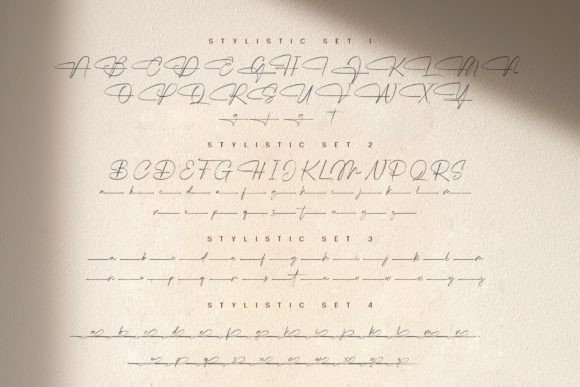 STYLISTIC SET 1
A B C D E G H I J K L M N
O P Q R S U V W X Y
g j g T
STYLISTIC SET 2
B C D E F G H I J K L M N P Q R S
a b c d e f g h i j k l m
n e p q s t u y z
STYLISTIC SET 3
a b c d e f g h i j k l m
n o p q r s t u v w x y z
STYLISTIC SET 4